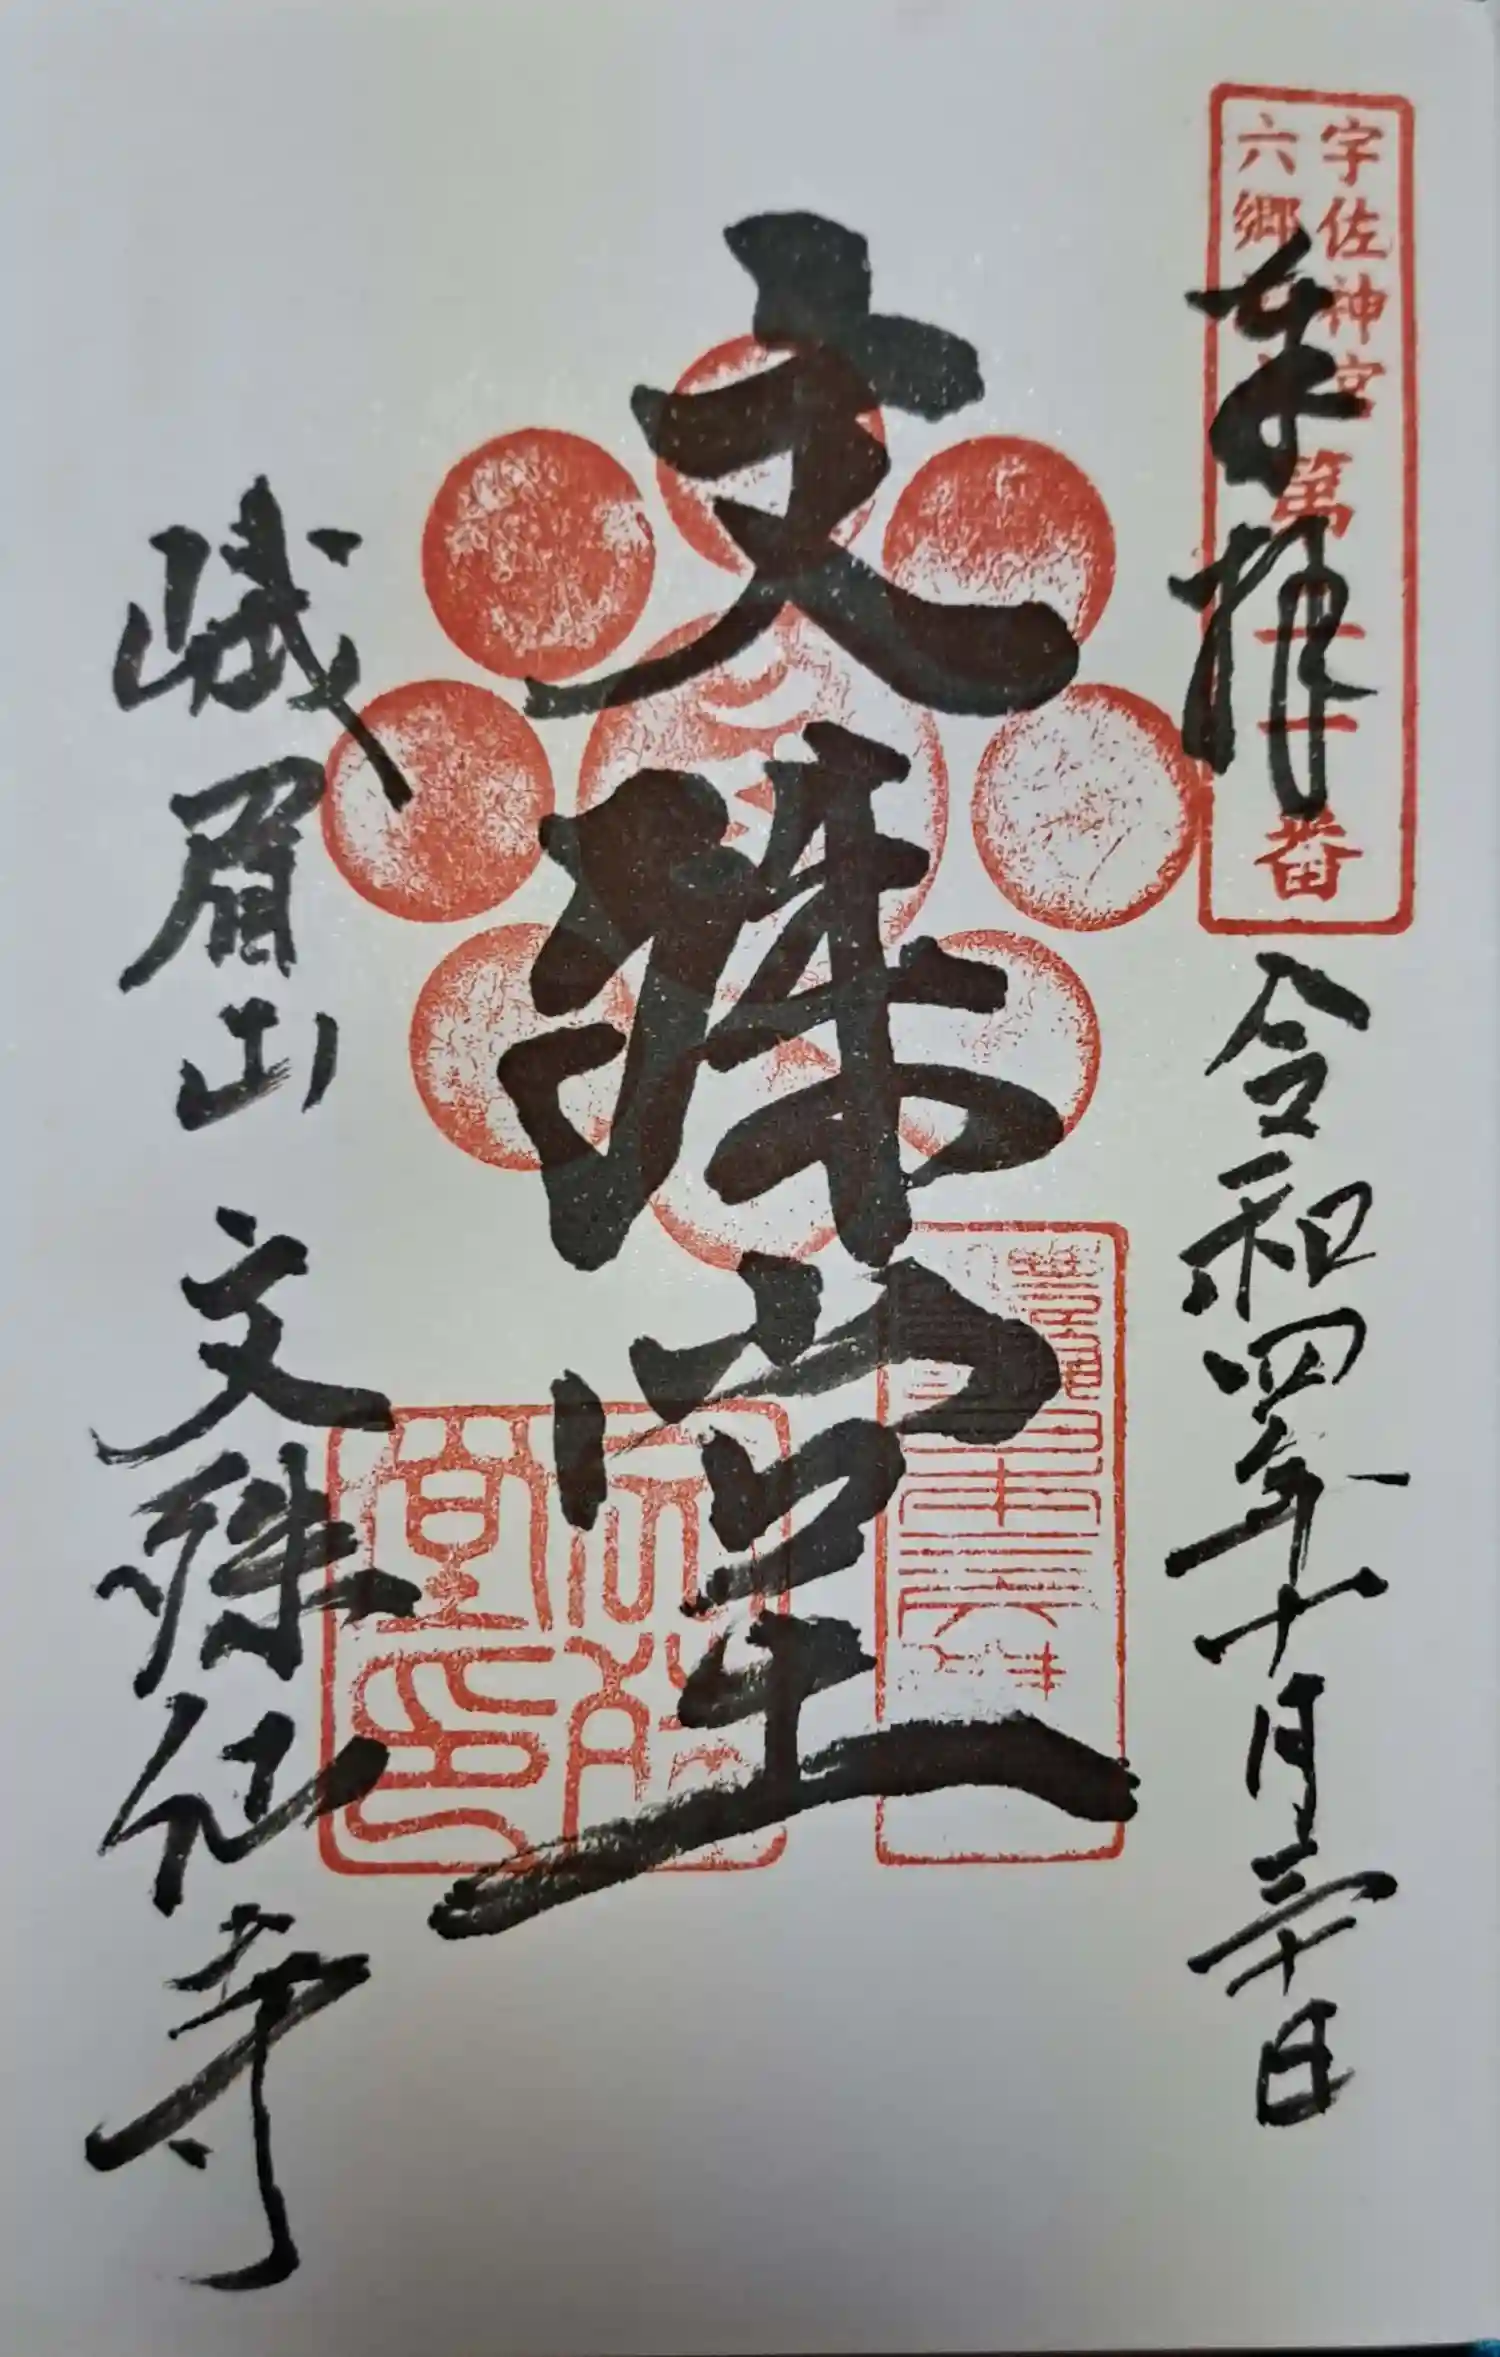 宇佐神宮
六郷
第二十二番
奉拝
令和四年十月三十日
文殊堂
峨眉山 文殊仙寺